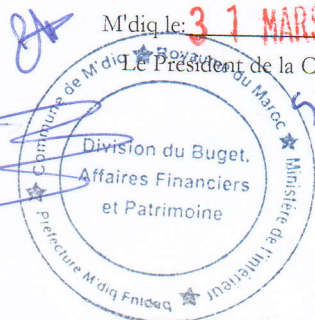 M'diq le: 31 MARS
Le Président de la C
Royaume du Maroc ★ Ministère de l'Intérieur
★ Préfecture M'diq Fnideq ★ Commune de M'diq ★
Division du Buget,
Affaires Financiers
et Patrimoine